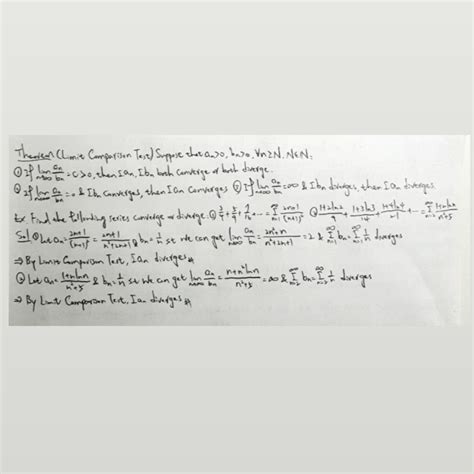 Theorem (Limit Comparison Test) Suppose that an>0, bn>0, ∀n≥N, N∈N,
① If lim n→∞ an/bn = c>0, then Σan, Σbn both converge or both diverge.
② If lim n→∞ an/bn = 0 & Σbn converges, then Σan converges ③ If lim n→∞ an/bn = ∞ & Σbn diverges, then Σan diverges.
Ex Find the following series converge or diverge. ① 3/4 + 5/9 + 7/16 + ... = Σ n=1 ∞ (2n+1)/(n+1)² ② (1+2ln2)/9 + (1+3ln3)/14 + (1+4ln4)/21 + ... = Σ n=2 ∞ (1+nlnn)/(n²+5)
Sol ① Let an = (2n+1)/(n+1)² = (2n+1)/(n²+2n+1) & bn = 1/n st we can get lim n→∞ an/bn = (2n²+n)/(n²+2n+1) = 2 & Σ n=1 ∞ bn = Σ n=1 ∞ 1/n diverges
⇒ By Limit Comparison Test, Σan diverges
② Let an = (1+nlnn)/(n²+5) & bn = 1/n st we can get lim n→∞ an/bn = (n+n²lnn)/(n²+5) = ∞ & Σ n=2 ∞ bn = Σ n=2 ∞ 1/n diverges
⇒ By Limit Comparison Test, Σan diverges